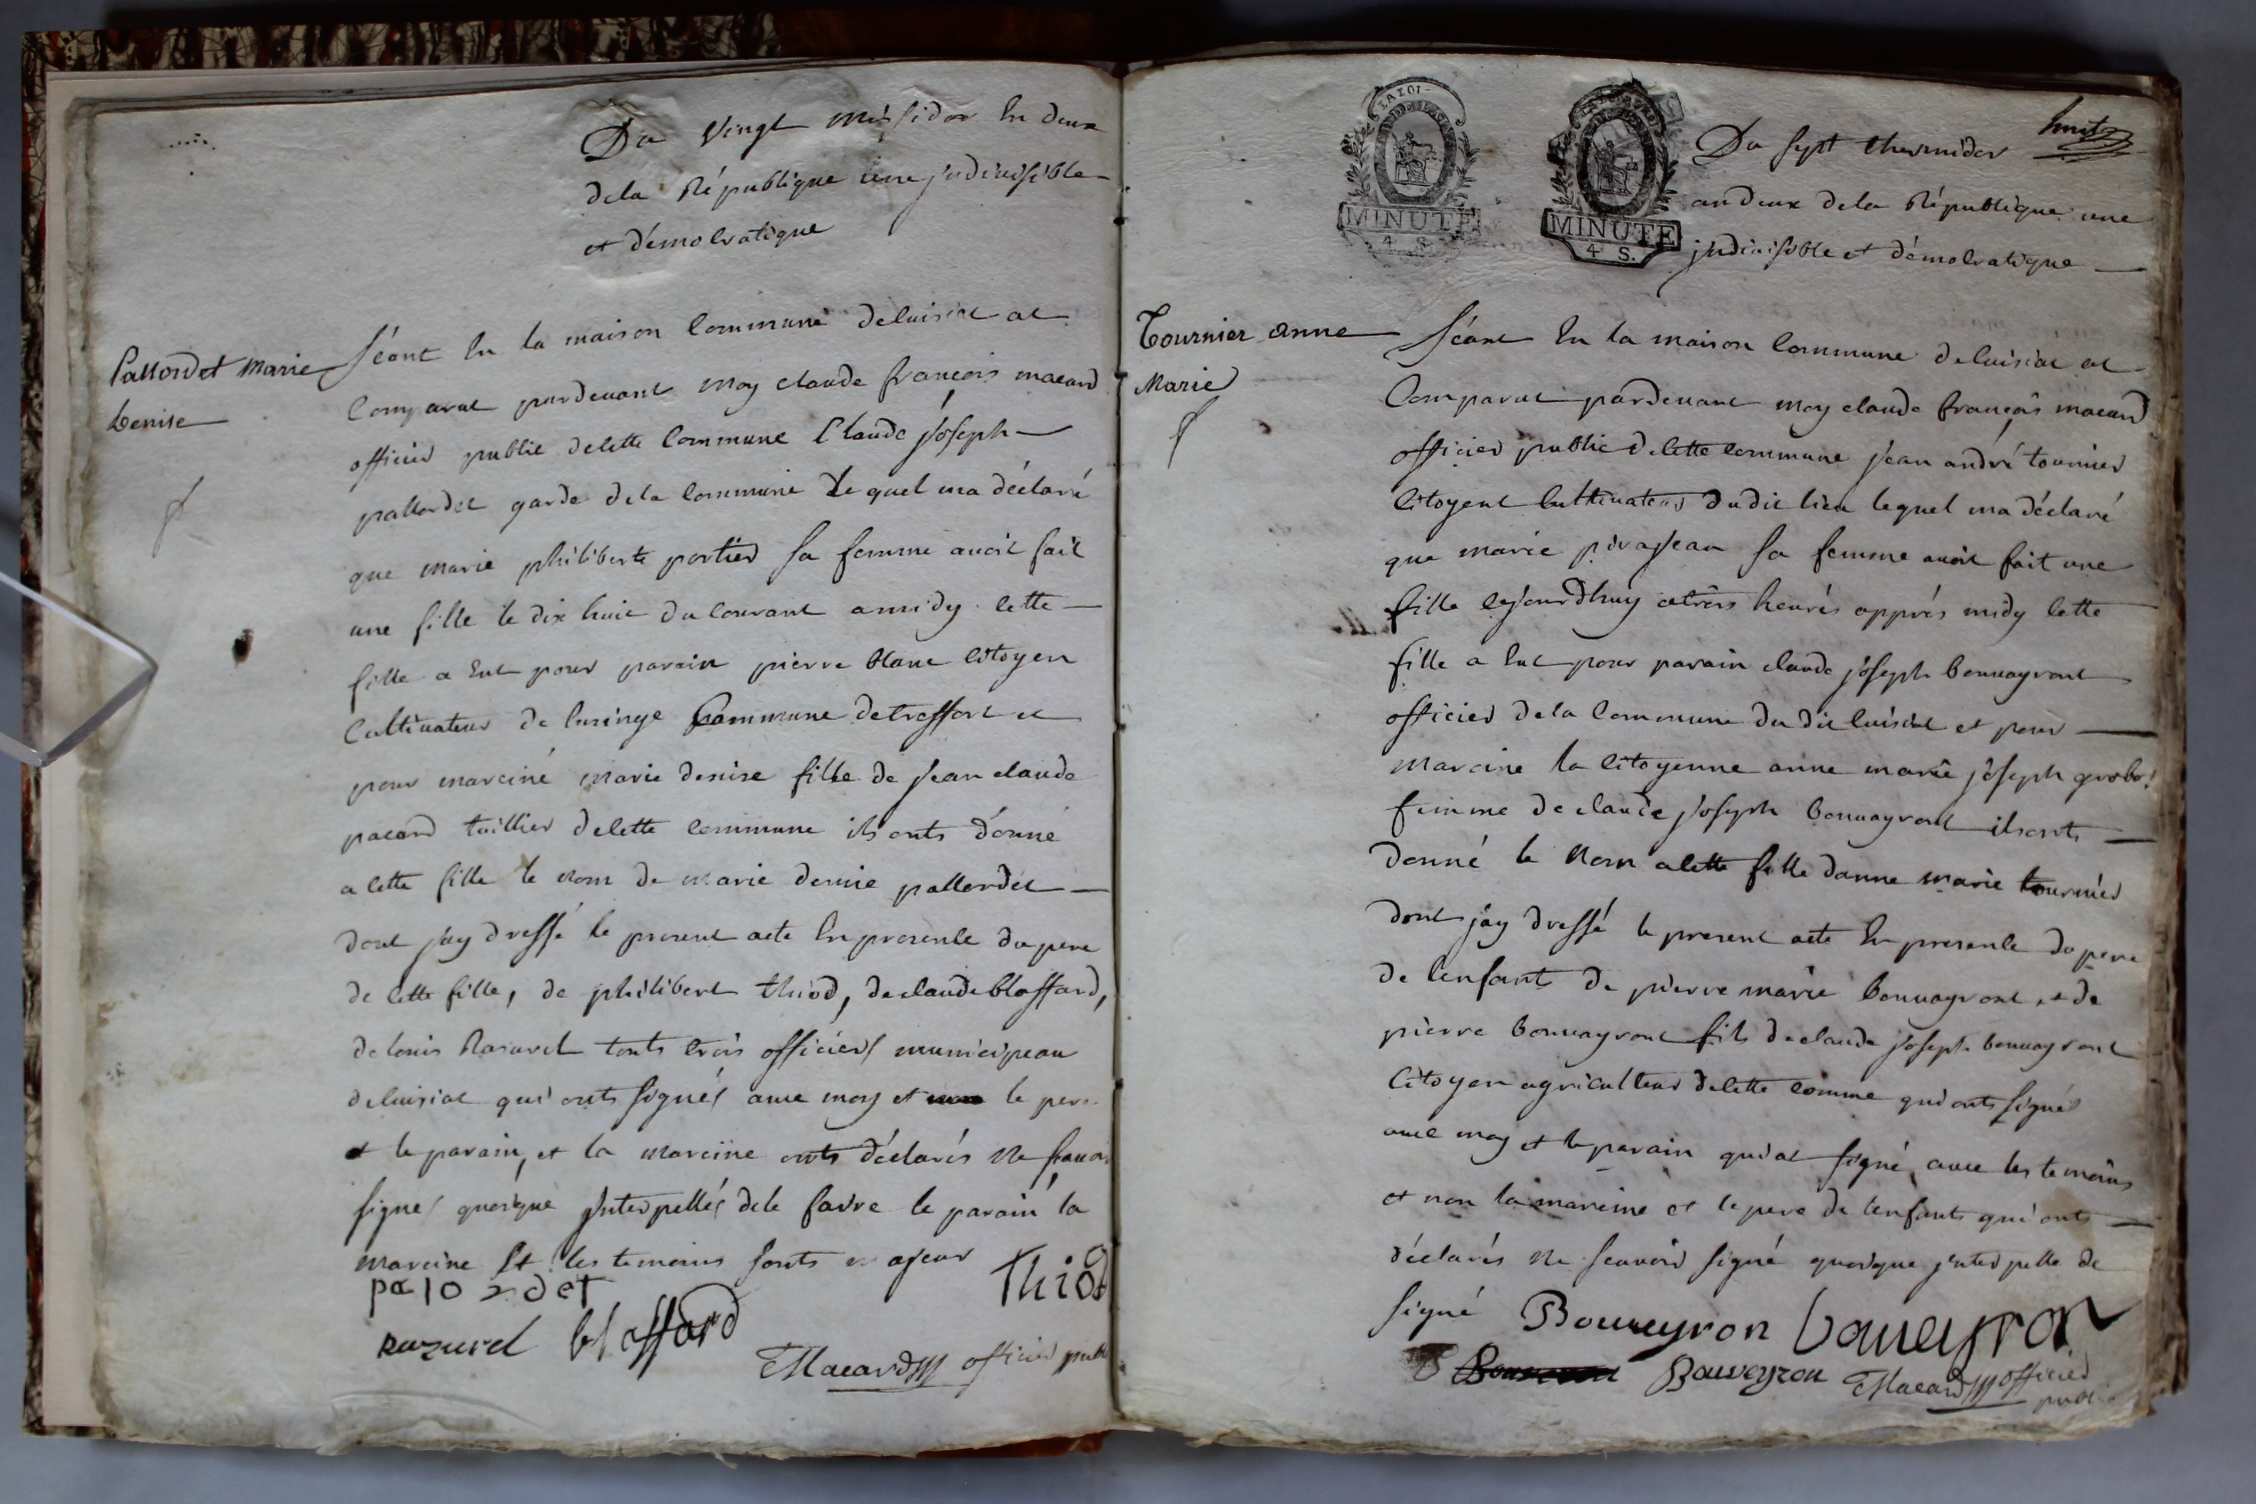 Du Vingt Messidor En deux
dela République une jndivisible
et démocratique
Pallordet Marie
Denise
séant En la maison Commune decuisiat at
Comparut pardevant moy claude françois macard
officier public de cette Commune Claude joseph
pallordet garde dela Commune Le quel ma déclaré
que marie philiberte portier sa femme avoit fait
une fille le dix huit du Courant a midy cette
fille a Eut pour parain pierre blanc Citoyen
Cultivateur de lusinge Commune detreffort et
pour mareine marie denise fille de jean claude
pacard taillier de cette commune ils onts donné
a cette fille le nom de marie denise pallordet
dont jay dressé le present acte En presence du pere
de cette fille, de philibert thiod, de claude bloffard,
de louis Rasurel touts trois officiers municipeau
decuisiat qui onts signés avec moy et le pere
et le parain, et la mareine onts déclarés ne scavoir
signer quoique jnterpellés dele faire le parain la
mareine Et les temoins sonts majeur
Thiod
palordet
razurel bloffard
CMacard officier publi
MINUTE
4 S.
MINUTE
4 S.
Du sept thermidor
an deux dela République une
jndivisible et démocratique
huit
Tournier anne
Marie
séant En la maison Commune decuisiat at
Comparut pardevant moy claude françois macard
officier public de cette commune jean andré tournier
Citoyent Cultivateur dudit lieu lequel ma déclaré
que marie pirajean sa femme avoit fait une
fille cejourdhuy a trois heures apprés midy cette
fille a Eut pour parain claude joseph bouvayront
officier dela Commune du dit cuisiat et pour
mareine la Citoyenne anne marie joseph
femme de claude joseph bouvayront ils onts
donné le Nom a cette fille danne marie tournier
dont jay dressé le present acte En presence du pere
de lenfant de pierre marie bouvayront et de
pierre bouvayront fils de claude joseph bouvayront
Citoyen agriculteur de cette comme qui onts signé
avec moy et le parain qui at signé avec les temoins
et non la mareine et le pere de lenfants qui onts
déclarés ne scavoir signé quoique jnterpelle de
signé Bouveyron bouveyron
Bouveyron CMacard officier
public